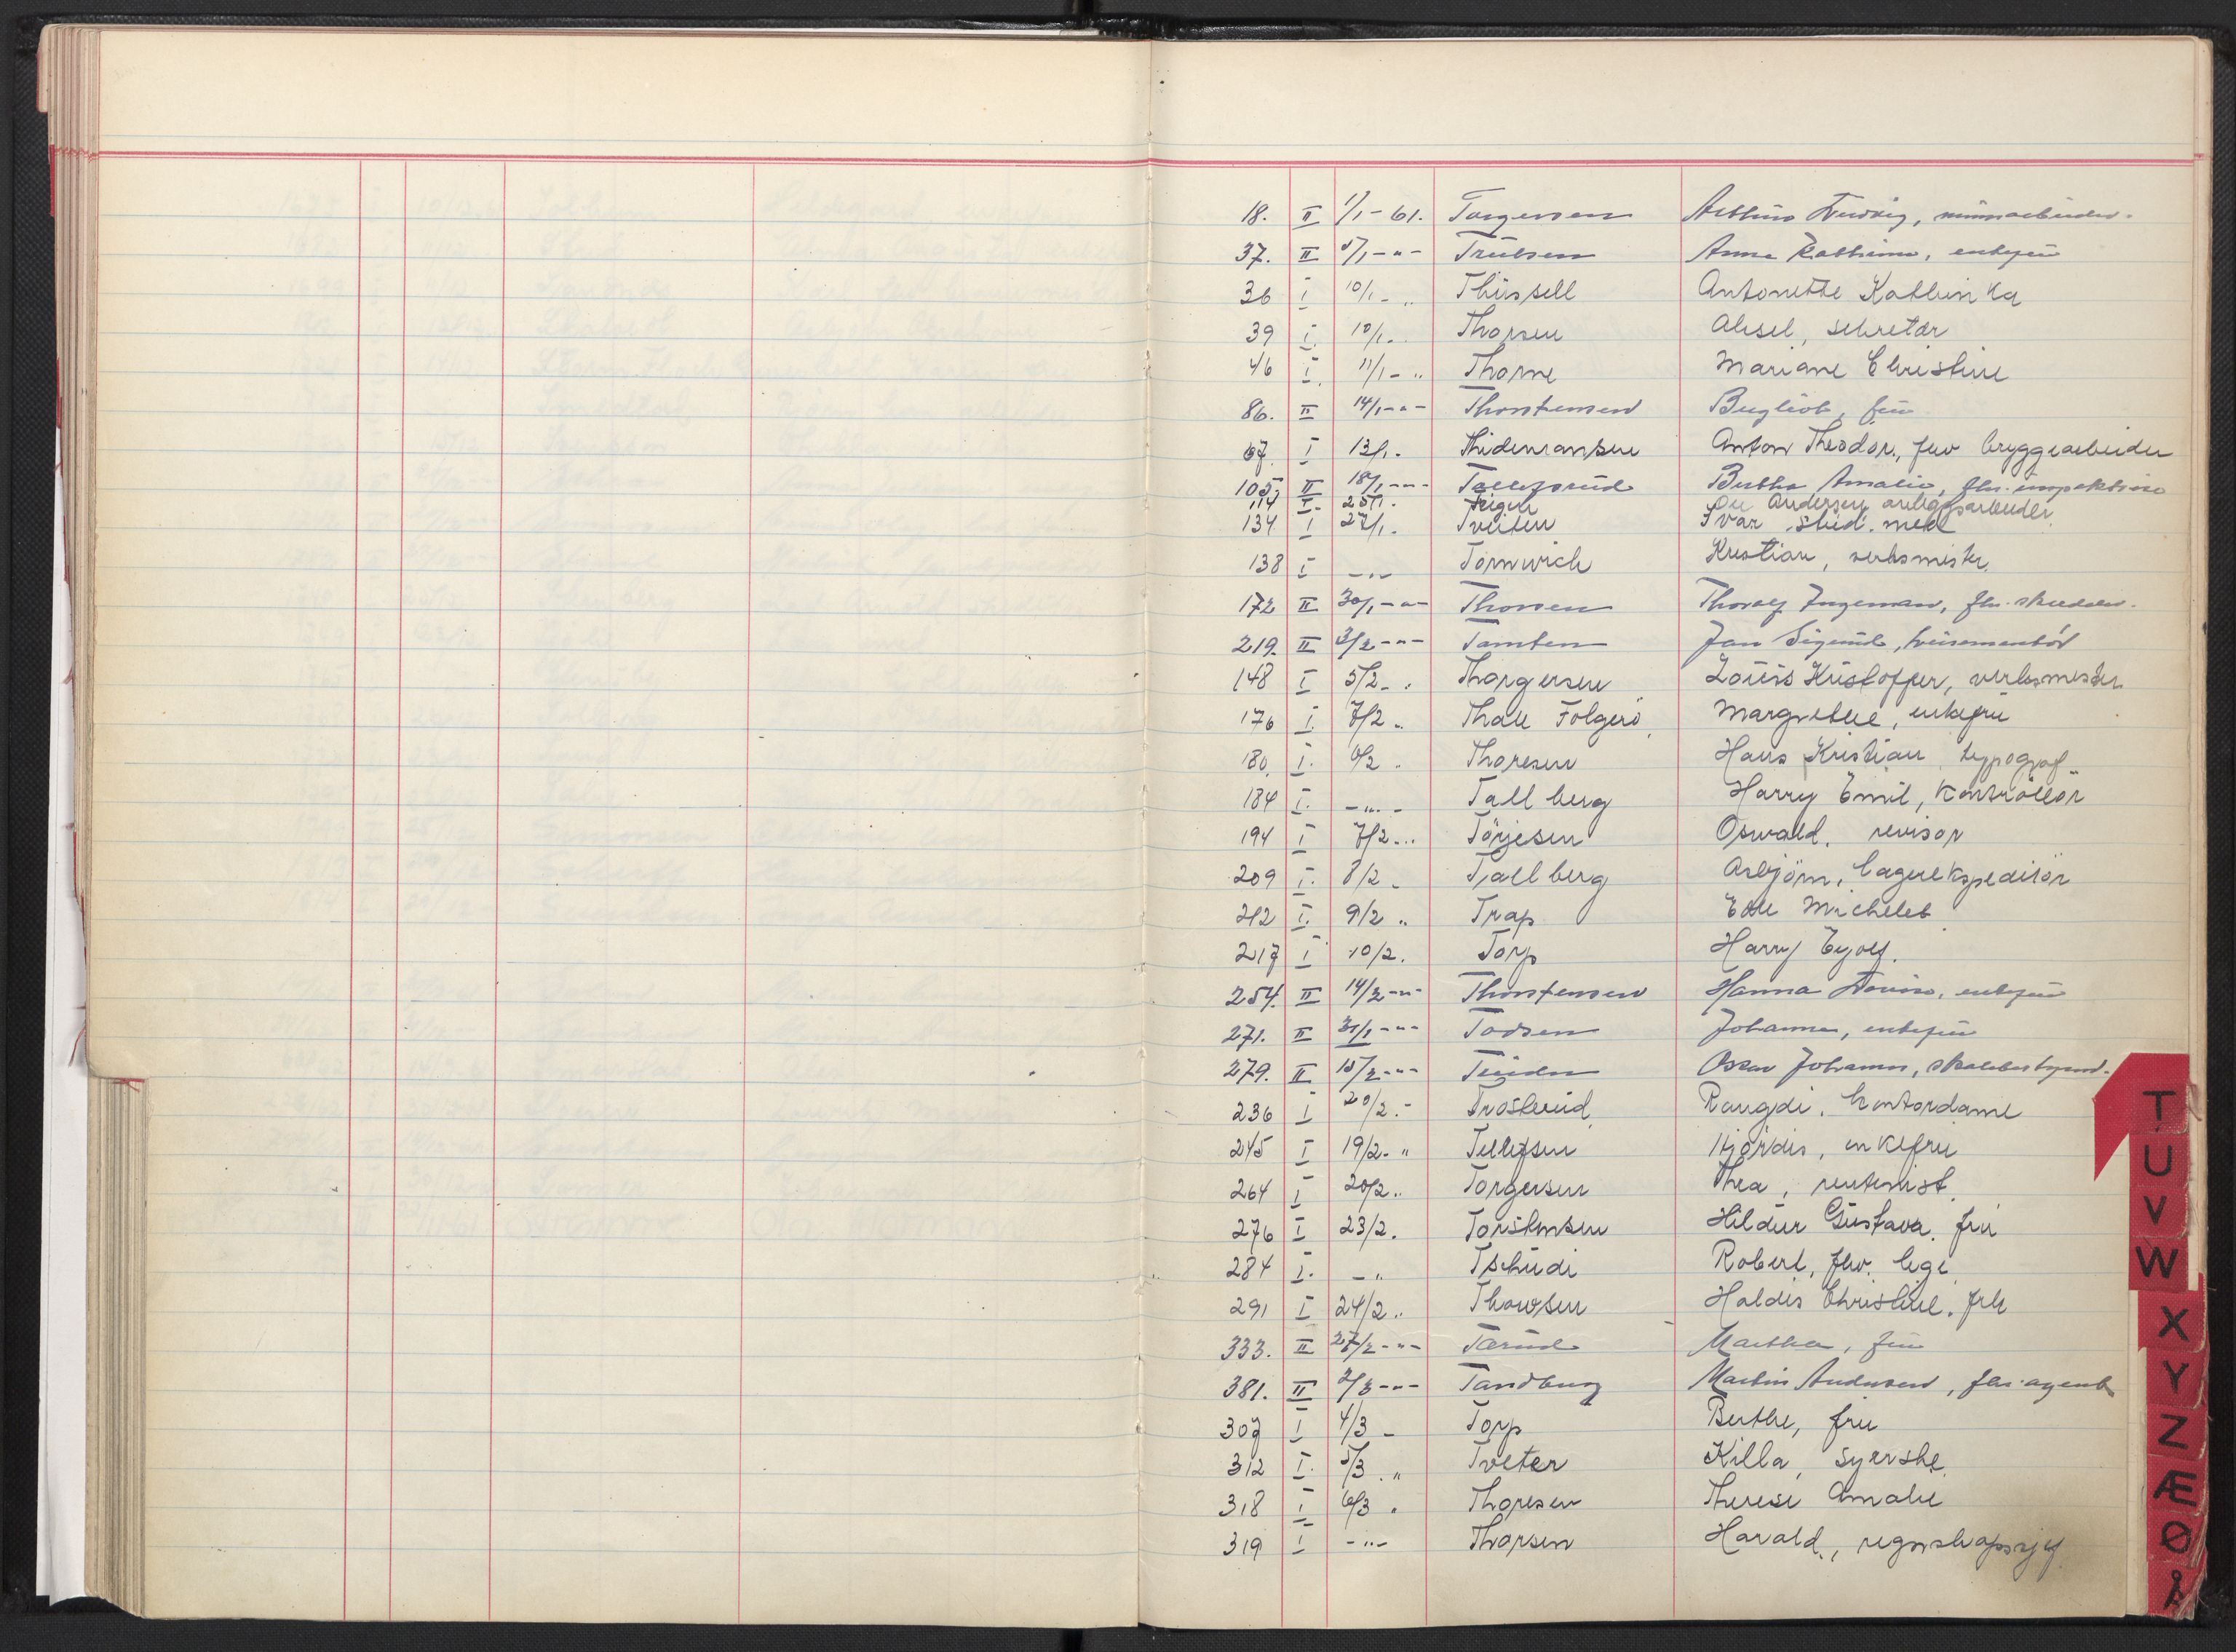 18. II 1/1-61. Torgersen Arthur Ludvig, murerarbeider.
37. II 5/1-"- Truelsen Anna Kathrine, enkefru
36 I 10/1-" Thirsell Antonette Kathinka
39 I. 10/1-. Thorsen Aksel, sekretær
46 I. 11/1-" Thorne Mariane Christine
86. II 14/1-"- Thorstensen Bergliot, fru
67. I 13/1. Thidemansen Anton Theodor, fhv bryggearbeider
105. II 18/1-"- Tollefsrud Bertha Amalie, fhv. inspektrise
114 I. 25/1. Teigen Ole Andersen anleggsarbeider
134 I 27/1. Tveiten Ivar stud. med
138 I -"- Tornwich Kristian, verksmester
172 II 30/1-"- Thorsen Thoralf Ingeman, fhv. skredder.
219. II 3/2-"- Tomten Jan Sigurd,
148 I 5/2-. Thorgersen Louis Kristoffer, verksmester
176 I. 7/2 " Thale Folgerö Margrethe, enkefru
180. I. 6/2. Thoresen Hans Kristian typograf
184 I. -"- Tallberg Harry Emil, kontrollør
194 I 7/2... Törjesen Oswald. revisor
209 I. 8/2- Tjallberg Asbjörn, lagerekspeditör
212 I. 9/2 " Trap Edle Michelet
217 I 10/2. Torp Harry Eyolf.
254. II 14/2-"- Thorstensen Hanna Lovise, enkefru
271. II 31/1-"- Todsen Johanne, enkefru
279. II 15/2-"- Oscar Johannes, skolebestyrer.
236 I 20/2.- Trosterud Raugdi, kontordame
245 I 19/2-" Tellefsen Hjørdis, enkefru
264 I 20/2.. Torgersen Thea, rentenist.
276 I 23/2. Torstensen Hildur Gustava. fru
284 I. -" Tschudi Robert, fhv. lege
291 I 24/2.. Thowsen Haldis Christine. frk
333. II 27/2-"- Tærud Martha, fru
381. II 2/3-"- Tandberg Martin Andersen, fhv. agent
307 I 4/3- Torp Berthe, fru
312 I. 5/3." Tveter Killa, syerske
318 I 6/3. Thoresen Therese Amalie
319 I -"- Thorsen Harald., regnskapssjef
T
U
V
W
X
Y
Z
Æ
Ø
Å